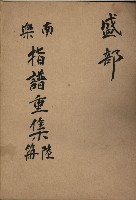 盛部
南樂
指譜重集
陸冊